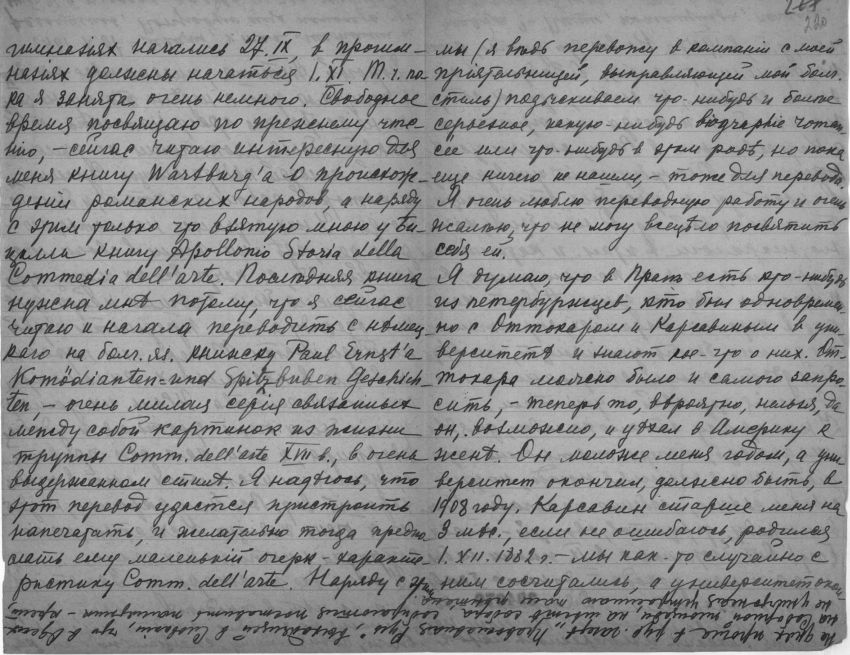 гимназіях начались 27 IX, в прогим-
назіях должны начаться 1. XI. Т. ч. по
ка я занята очень немного. Свободное
время посвящаю по прежнему чте-
нію, – сейчас читаю интересную для
меня книгу Wartburg'а О происхож-
деніи романских народов, а наряду
с этим только что взятую мною у Би
цилли книгу Apollonio Storia della
Commedia dell'arte. Послѣдняя книга
нужна мнѣ потому, что я сейчас
читаю и начала переводить с нѣмец
каго на болг. яз. книжку Paul Ernst'а
Komödianten- und Spitzbuben Geschich-
ten, – очень милая серія связанных
между собой картинок из жизни
труппы Comm. dell'arte XVIII в., в очень
выдержанном стилѣ. Я надѣюсь, что
этот перевод удастся пристроить
напечатать, и желательно тогда предпо
слать ему маленькій очерк-характе
ристику Comm. dell'arte. Наряду с этим
220
мы (я вѣдь перевожу в компаніи с моей
пріятельницей, выправляющей мой болг.
стиль) подыскиваем что-нибудь и болѣе
серьезное, какую-нибудь
или что-нибудь в этом родѣ, но пока
еще ничего не нашли, – тоже для перевода.
Я очень люблю переводную работу и очень
жалѣю, что не могу всецѣло посвятить
себя ей.
Я думаю, что в Прагѣ есть кто-нибудь
из петербуржцев, кто был одновремен-
но с Оттокаром и Карсавиным в уни-
верситетѣ и знают кое-что о них. От-
токара можно было и самого запро-
сить, – теперь то, вѣроятно, нельзя, да
он, возможно, и уѣхал в Америку к
женѣ. Он моложе меня годом, а уни-
верситет окончил, должно быть, в
1908 году. Карсавин старше меня на
3 мѣс., если не ошибаюсь, родился
1. XII. 1882 г. – мы как-то случайно с
ним сосчитались, а университет окон